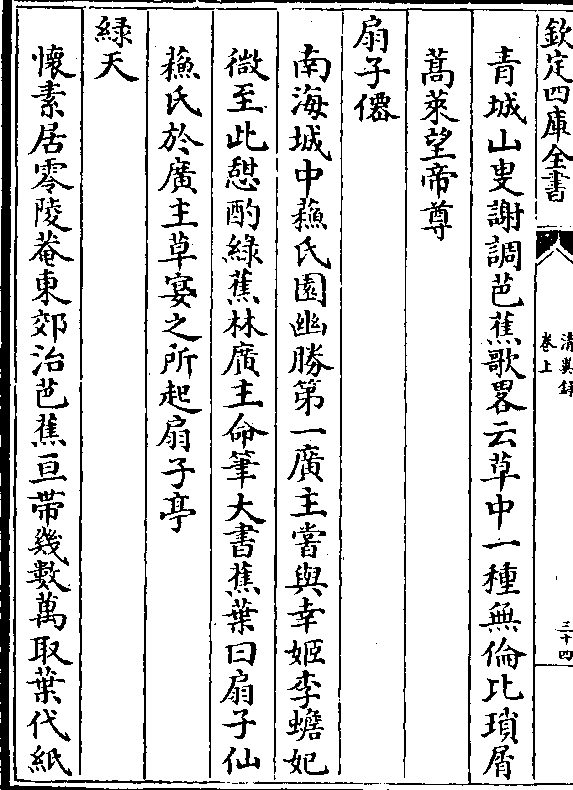 欽定四庫全書
清異録
卷上
三十四
青城山叟謝調芭蕉歌畧云草中一種無倫比瑣屑
蒿萊望帝尊
扇子僊
南海城中蘓氏園幽勝第一廣主嘗與幸姬李蟾妃
微至此憇酌綠蕉林廣主命筆大書蕉葉曰扇子仙
蘓氏於廣主草宴之所起扇子亭
緑天
懐素居零陵菴東郊治芭蕉亘帯幾數萬取葉代紙